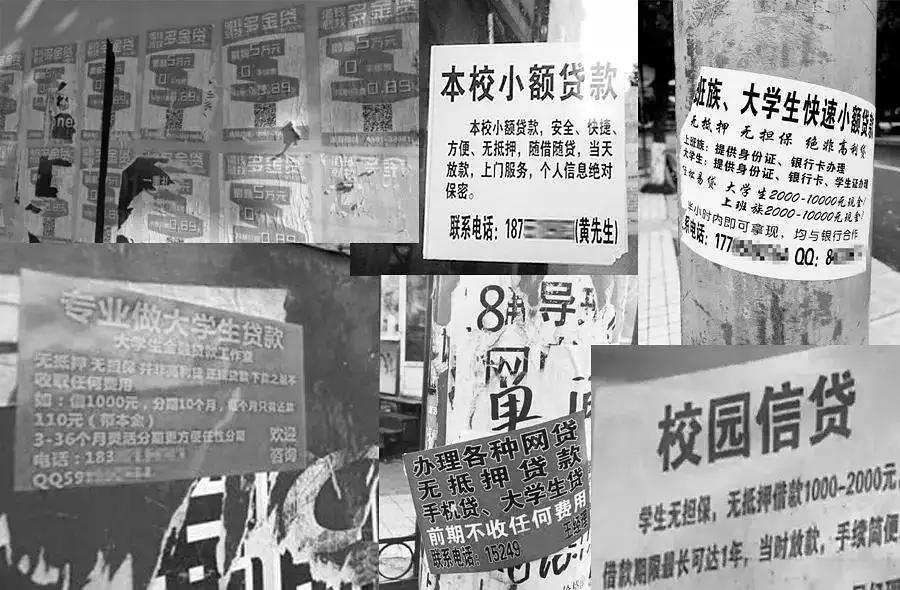 多金贷
5万元
0.89
本校小额贷款
本校小额贷款，安全、快捷、
方便、无抵押，随借随贷，当天
放款，上门服务，个人信息绝对
保密。
联系电话：187
(黄先生)
班族、大学生快速小额贷款
无抵押 无担保 绝非高利贷
上班族：提供身份证、银行卡办理
大学生：提供身份证、银行卡、学生证办理
大学生2000-10000元现金!
上班族2000-10000元现金!
半小时内即可拿现，均与银行合作
系电话：177
QQ：8
专业做大学生贷款
无抵押 无担保 并非高利贷
收取任何费用
如：借1000元，分期10个月，每个月只需还款
110元（带本金）
3-36个月灵活分期更方便任性分期
欢迎
咨询
电话：183
QQ59
8
导
网
办理各种网贷
无抵押贷款
手机贷、大学生贷
前期不收任何费用
联系电话：15249
校园信贷
学生无担保，无抵押借款1000-2000元，
借款期限最长可达1年，当时放款，手续简便